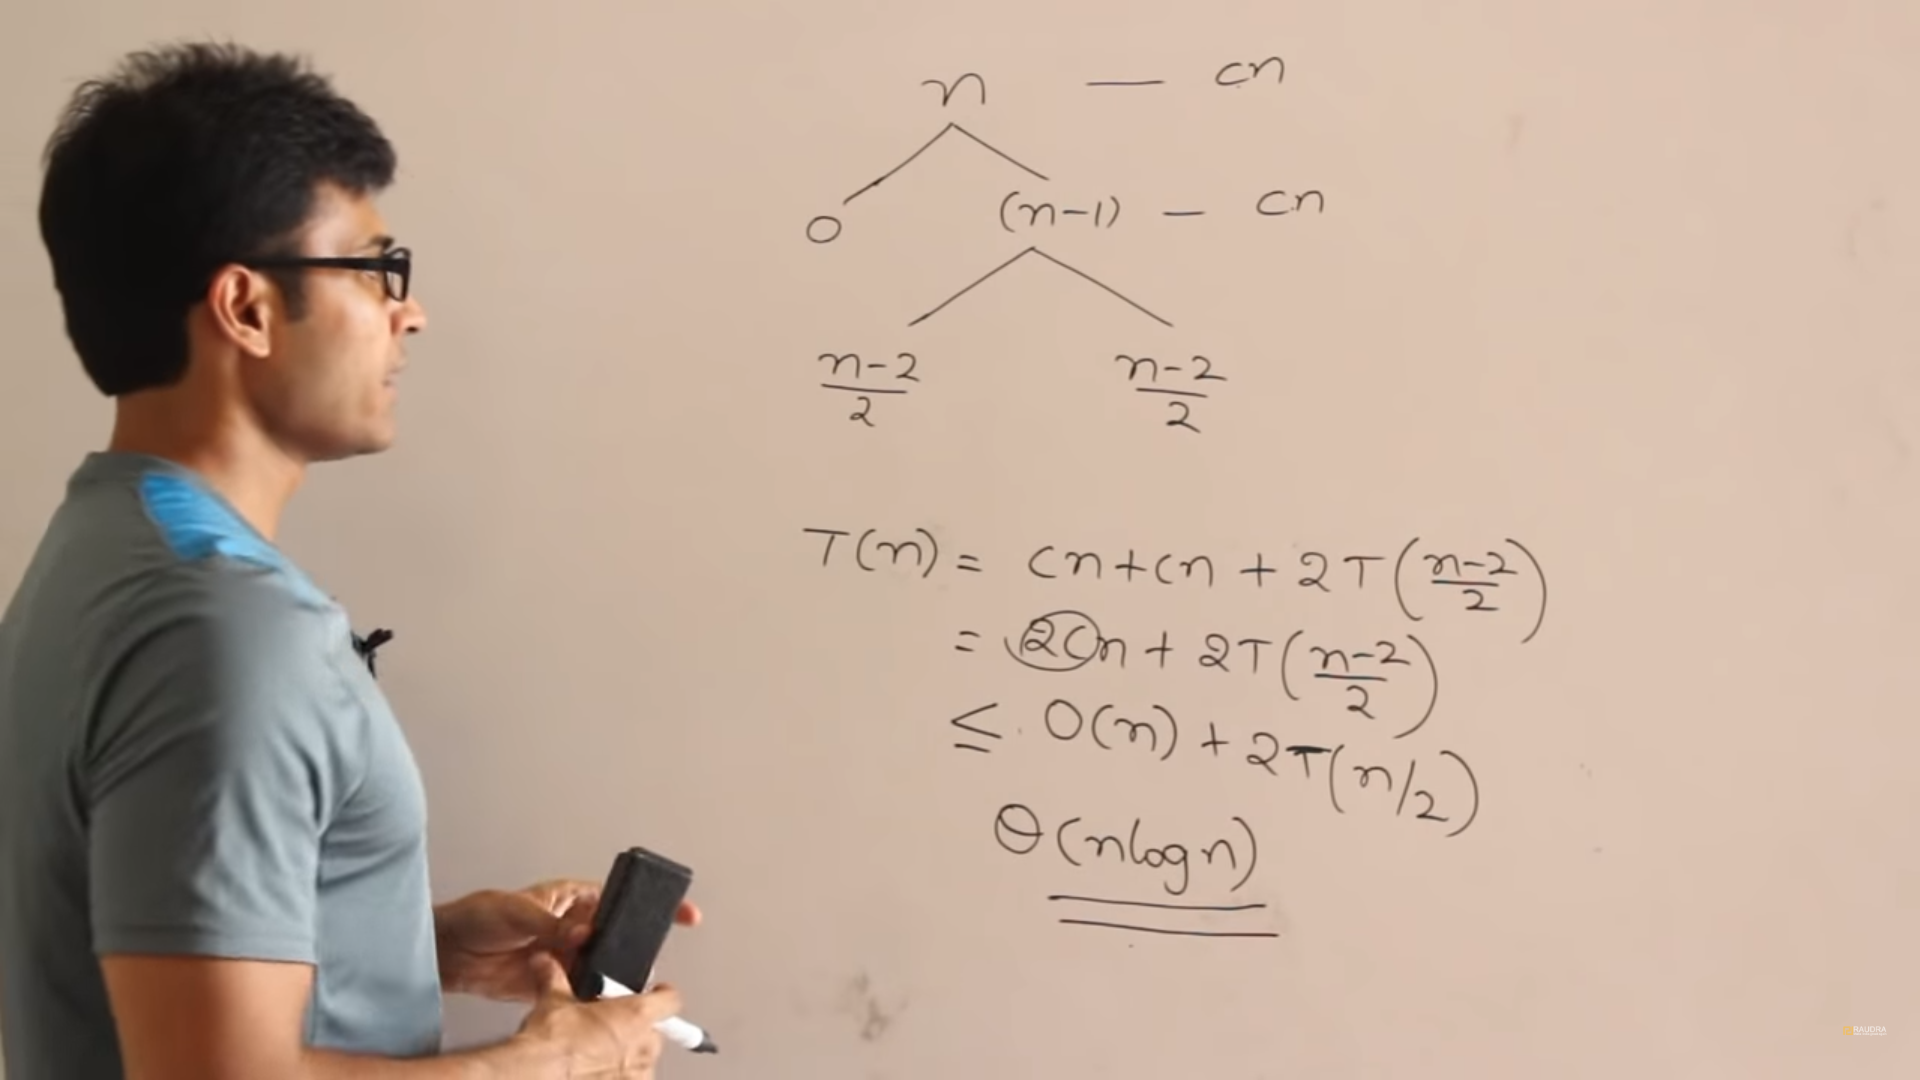 n — cn
0 (n-1) — cn
n-2/2 n-2/2
T(n) = cn+cn + 2T(n-2/2)
= 2cn + 2T(n-2/2)
≤ O(n) + 2T(n/2)
θ(nlogn)
RAUDRA